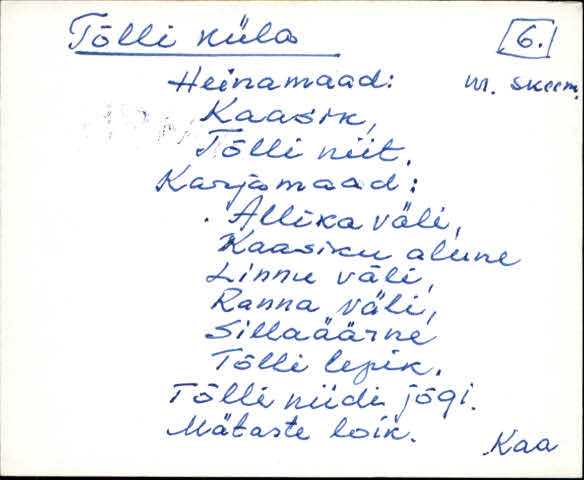 Tõlli küla 6.
Heinamaad: vt. skeem.
Kaasik,
Tõlli niit.
Karjamaad:
Allika väli,
Kaasiku alune
Linnu väli,
Ranna väli,
Sillaäärne
Tõlli lepik.
Tõlli niidi jõgi.
Mätaste loik.
Kaa